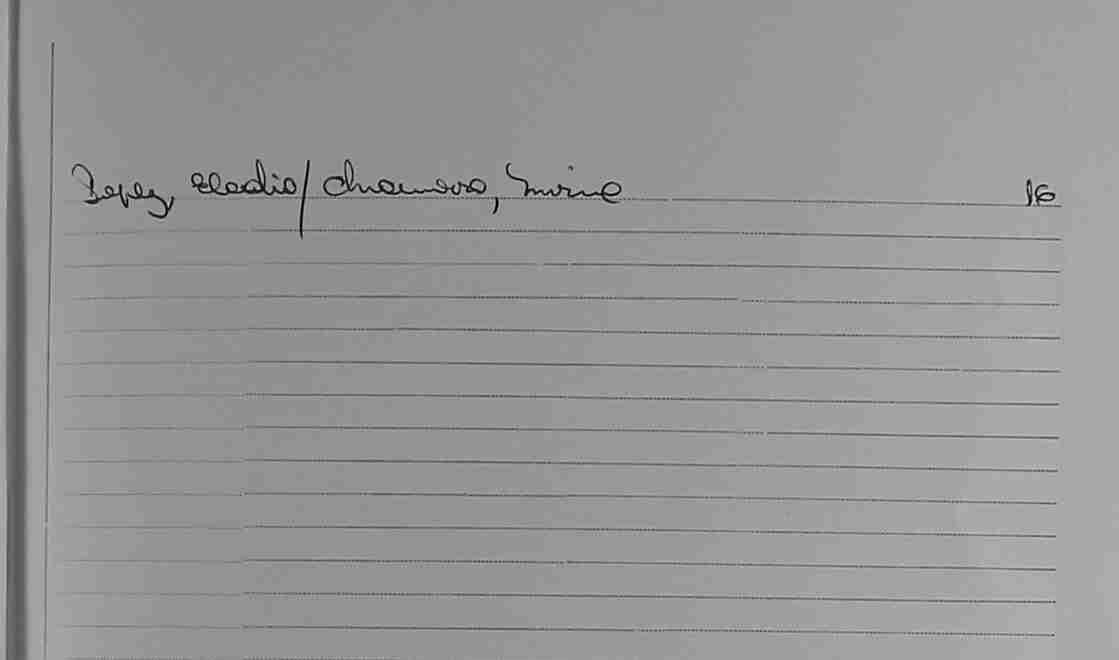 Lopez, Eladio/ Chamorro, 16